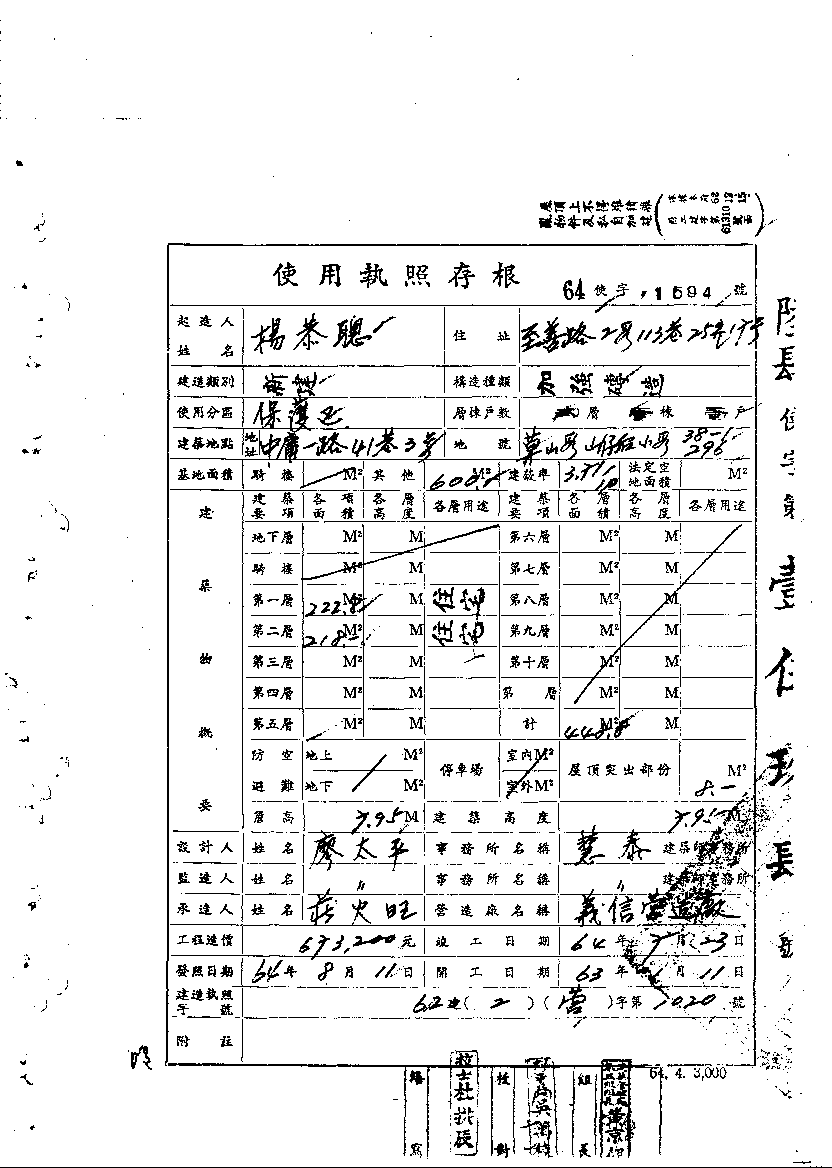 屋頂上不得堆積雜
亂物件及私自加建
使用執照存根
64 使字 1594 號
起造人姓名 楊恭聰 住址 至善路2段113巷25弄17号
建造類別 新建 構造種類 加強磚造
使用分區 保護區 層棟戶數 層 棟 戶
建築地點 地址 中庸一路41巷3号 地號 草山段山仔后小段 38-1 296
基地面積 騎樓 M² 其他 M² 建蔽率 法定空地面積 M²
建築物概要 建築要項 各項面積 各層高度 各層用途 建築要項 各層面積 各層高度 各層用途
地下層 M² M 第六層 M² M
騎樓 M² M 第七層 M² M
第一層 222.8 M² M 住宅 第八層 M² M
第二層 218.- M² M 住宅 第九層 M² M
第三層 M² M 第十層 M² M
第四層 M² M 第 層 M² M
第五層 M² M 計 448.8 M² M
防空避難 地上 M² 停車場 室內M² 屋頂突出部份 8.- M²
地下 M² 室外M²
層高 7.95 M 建築高度 7.95 M
設計人 姓名 廖太平 事務所名稱 慧泰 建築師事務所
監造人 姓名 〃 事務所名稱 〃 建築師事務所
承造人 姓名 莊火旺 營造廠名稱 義信營造廠
工程造價 673,200 元 竣工日期 64年7月23日
發照日期 64年8月11日 開工日期 63年1月11日
建造執照字號 62建(2)(營)字第1020號
附註
64. 4. 3,000
繕寫 校對 組長